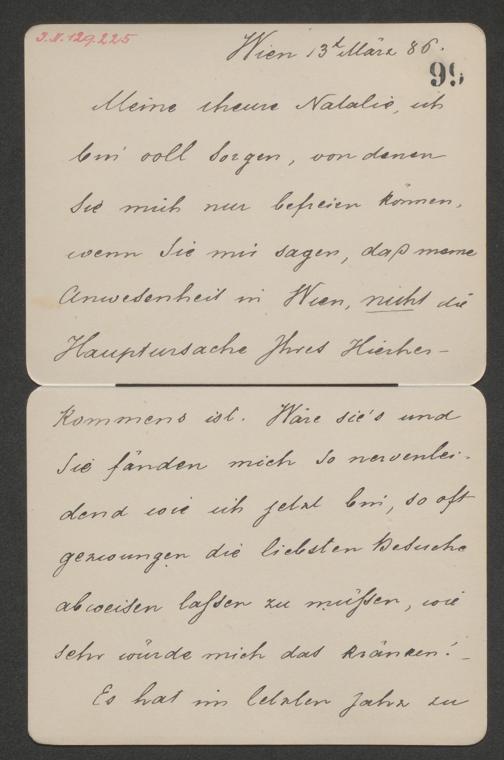 J.N. 129.225
Wien 13t März 86.
99
Meine theure Natalie, ich
bin voll Sorgen, von denen
Sie mich nur befreien können,
wenn Sie mir sagen, daß meine
Anwesenheit in Wien, nicht die
Hauptursache Ihres Hierher-
kommens ist. Wäre sie's und
Sie fänden mich so nervenlei-
dend wie ich jetzt bin, so oft
gezwungen die liebsten Besuche
abweisen lassen zu müssen, wie
sehr würde mich das kränken! –
Es hat im letzten Jahr zu